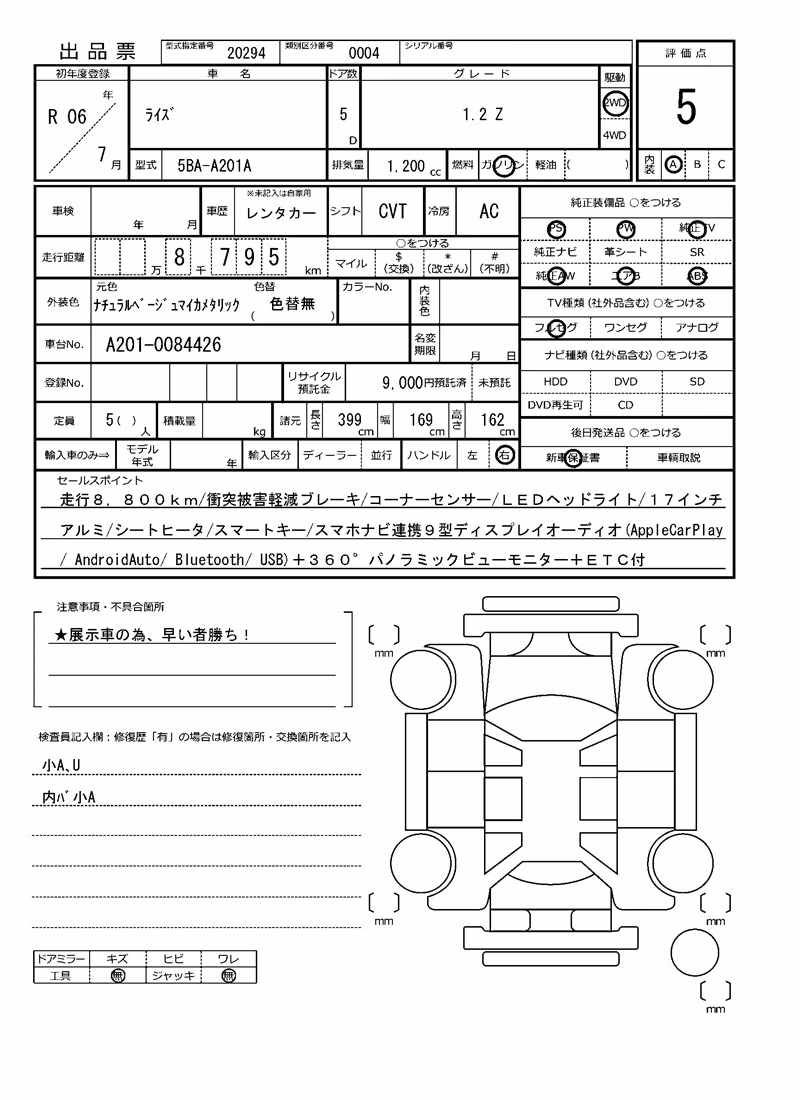 出品票 型式指定番号 20294 類別区分番号 0004 シリアル番号
評価点
初年度登録 車名 ドア数 グレード 駆動
R 06 年 7 月 ﾗｲｽﾞ 5 D 1.2 Z 2WD 4WD
5
型式 5BA-A201A 排気量 1,200 cc 燃料 ガソリン 軽油 ( )
内装 A B C
車検 年 月 車歴 ※未記入は自家用 レンタカー シフト CVT 冷房 AC
純正装備品 ○をつける
PS PW 純正TV
走行距離 万 8 千 7 9 5 km
○をつける
マイル $ (交換) * (改ざん) # (不明)
純正ナビ 革シート SR
純正AW エアB ABS
外装色 元色 ﾅﾁｭﾗﾙﾍﾞｰｼﾞｭﾏｲｶﾒﾀﾘｯｸ 色替 ( 色替無 ) カラーNo. 内装色
TV種類 (社外品含む) ○をつける
フルセグ ワンセグ アナログ
車台No. A201-0084426 名変期限 月 日
ナビ種類 (社外品含む) ○をつける
登録No. リサイクル預託金 9,000 円預託済 未預託
HDD DVD SD
DVD再生可 CD
定員 5 ( ) 人 積載量 kg 諸元 長さ 399 cm 幅 169 cm 高さ 162 cm
後日発送品 ○をつける
輸入車のみ⇒ モデル年式 年 輸入区分 ディーラー 並行 ハンドル 左 右
新車保証書 車輌取説
セールスポイント
走行８．８００ｋｍ/衝突被害軽減ブレーキ/コーナーセンサー/ＬＥＤヘッドライト/１７インチ
アルミ/シートヒータ/スマートキー/スマホナビ連携９型ディスプレイオーディオ(AppleCarPlay
/ AndroidAuto/ Bluetooth/ USB)＋３６０°パノラミックビューモニター＋ＥＴＣ付
注意事項・不具合箇所
★展示車の為、早い者勝ち！
mm mm
検査員記入欄：修復歴「有」の場合は修復箇所・交換箇所を記入
小A､U
内ﾊﾞ小A
mm mm
ドアミラー キズ ヒビ ワレ
工具 無 ジャッキ 無
mm